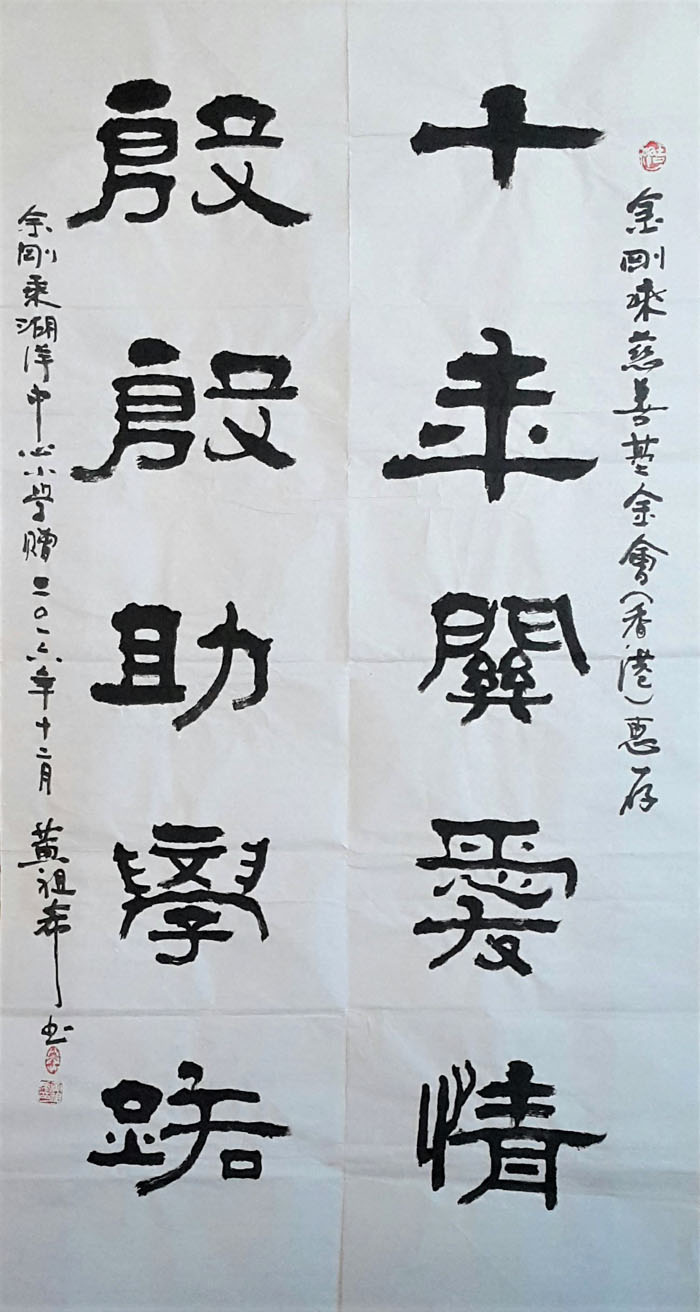 金剛乘慈善基金會（香港）惠存
十年關愛情
殷殷助學路
金剛乘湖洋中心小學贈 二〇一六年十二月 黃祖希 书